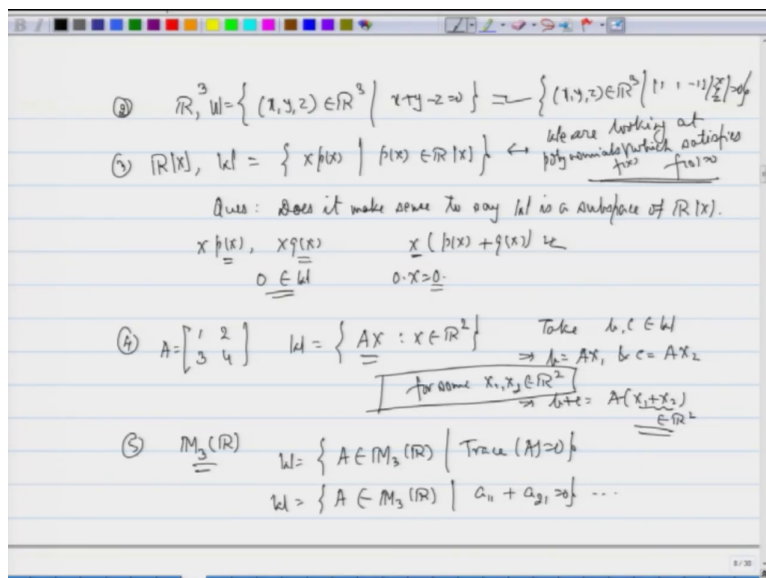 ② ℝ³, W = { (x,y,z) ∈ ℝ³ | x+y-z=0 } = { (x,y,z) ∈ ℝ³ | [1, 1, -1] [x y z] = 0 }
③ ℝ[x], W = { x p(x) | p(x) ∈ ℝ[x] } ← We are looking at polynomials f(x) which satisfies f(0)=0
Ques: Does it make sense to say W is a subspace of ℝ[x].
x p(x), x q(x) x (p(x) + q(x))
0 ∈ W 0·x = 0.
④ A = [1 2 3 4] W = { AX : X ∈ ℝ² } Take b, c ∈ W
⇒ b = AX₁ & c = AX₂
for some X₁, X₂ ∈ ℝ²
⇒ b+c = A(X₁+X₂)
∈ ℝ²
⑤ M₃(ℝ) W = { A ∈ M₃(ℝ) | Trace (A)=0 }
W = { A ∈ M₃(ℝ) | a₁₁ + a₂₁ = 0 } ...
8/30